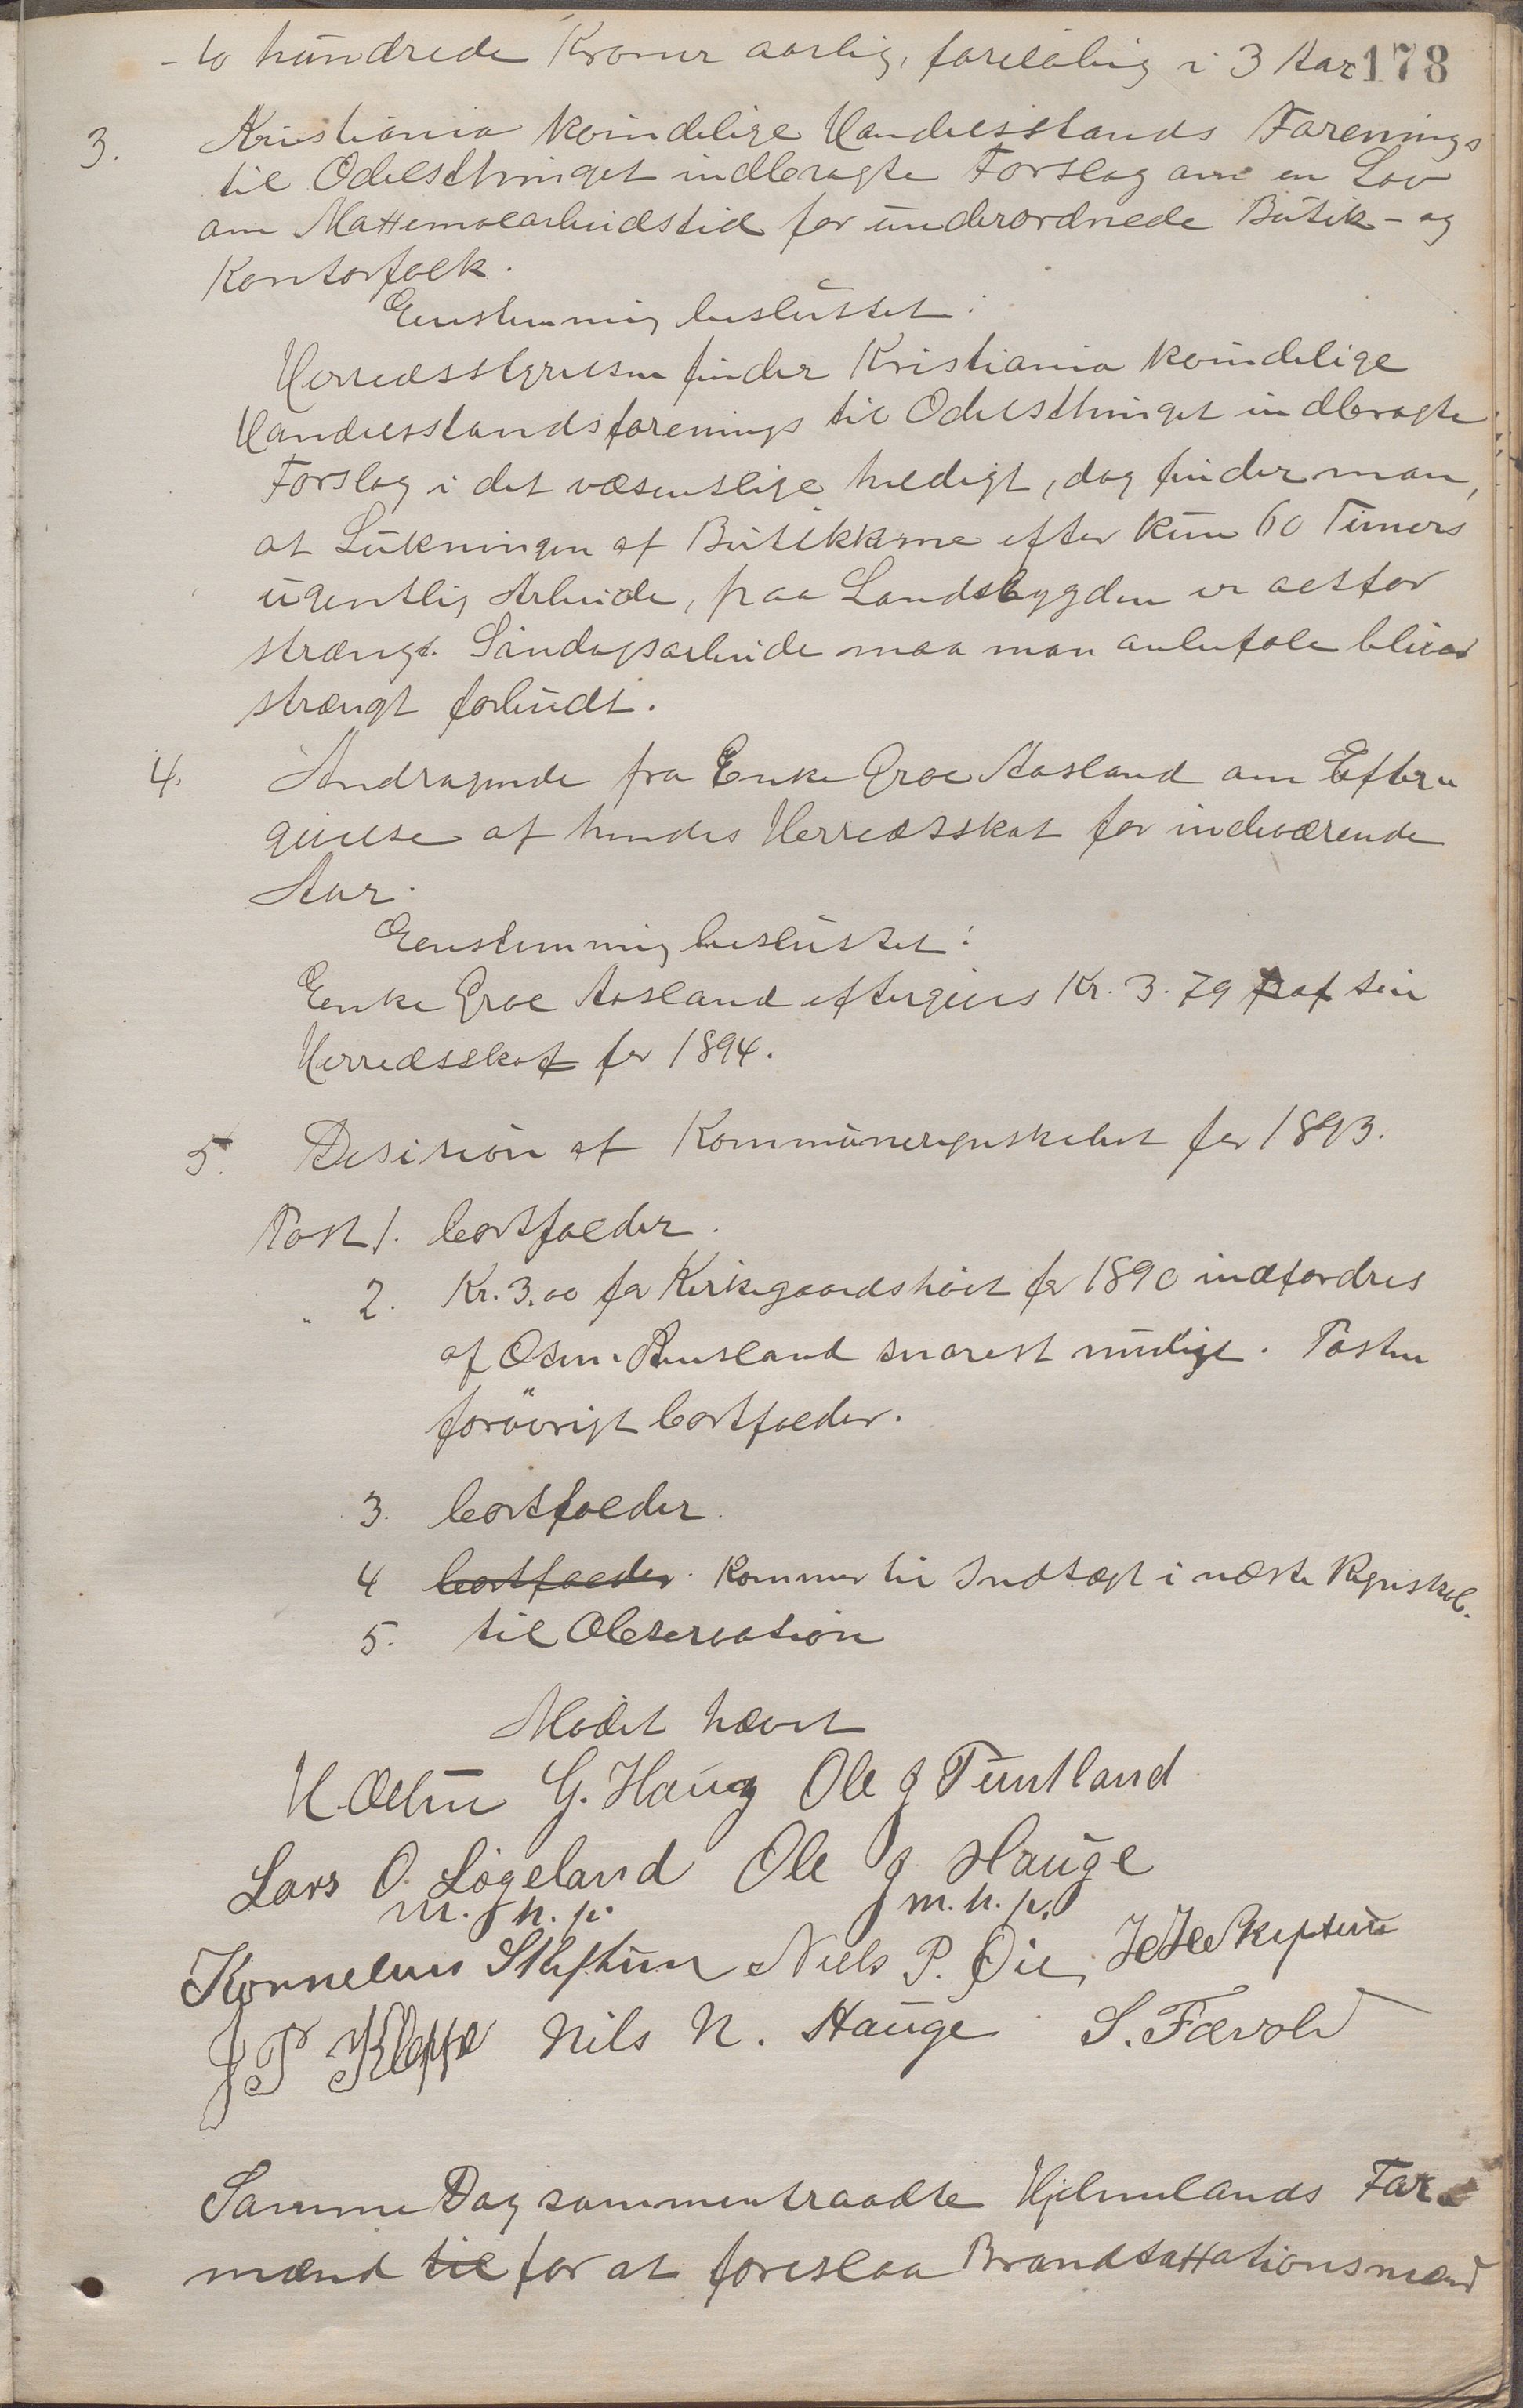 - to hundrede Kroner aarlig, foreløbig i 3 Aar 178
3. Kristiania kvindelige Handelsstands Forenings
til Odelsthinget indbragte Forslag om en Lov
om Maximalarbeidstid for underordnede Butik- og
Kontorfolk.
Eenstemmig besluttet:
Herredsstyrelsen finder Kristiania kvindelige
Handelsstandsforenings til Odelsthinget indbragte
Forslag i det væsentlige heldigt, dog finder man,
at Lukningen af Butikkerne efter kun 60 Timers
ugentlig Arbeide, paa Landsbygden er altfor
strængt. Søndagsarbeide maa man anbefale bliver
strængt forbudt.
4. Andragende fra Enke Groe Aasland om Efter-
givelse af hendes Herredsskat for indeværende
Aar.
Eenstemmig besluttet:
Enke Groe Aasland eftergives Kr. 3.79 af sin
Herredsskat for 1894.
5. Desision af Kommuneregnskabet for 1893.
Post 1. bortfalder.
" 2. Kr. 3.00 for Kirkegaardshold for 1890 indfordres
af Osm. Riveland snarest muligt. Posten
forøvrigt bortfalder.
3. bortfalder.
4 bortfalder. Kommer til Indtægt i næste Regnskab.
5. til Observation
Mødet hævet
G. Haug Ole J Tuntland
Lars O. Løgeland Ole J Hauge
m. h. p. m. h. p.
Kornelius Skiftun Niels P. Øie, Skiftun
J P Kleppe Nils N. Hauge S. Fævold
Samme Dag sammentraadte Hjelmelands For-
mænd til for at foreslaa Brandtaxationsmænd